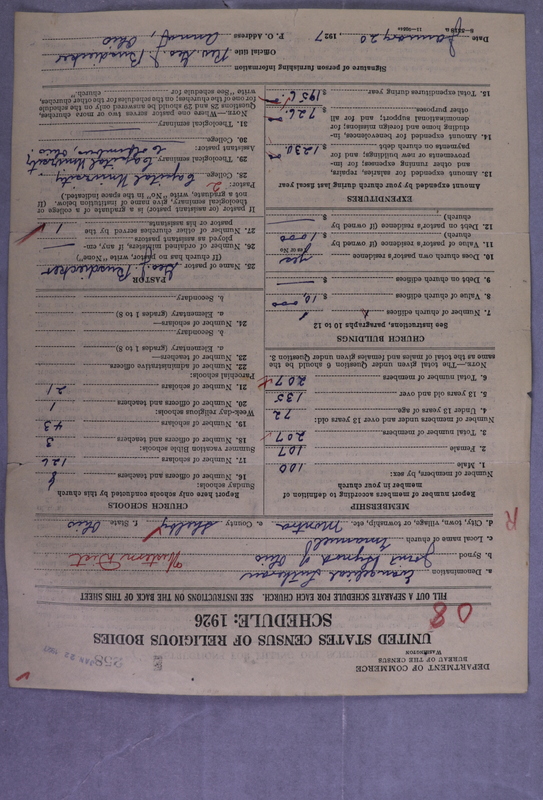 DEPARTMENT OF COMMERCE
BUREAU OF THE CENSUS
WASHINGTON
258
UNITED STATES CENSUS OF RELIGIOUS BODIES
SCHEDULE: 1926
08
FILL OUT A SEPARATE SCHEDULE FOR EACH CHURCH. SEE INSTRUCTIONS ON THE BACK OF THIS SHEET
a. Denomination Evangelical Lutheran
b. Synod Joint Synod of Ohio Western Dist
c. Local name of church Emanuel
d. City, town, village, or township, etc. Montra e. County Shelby f. State Ohio
R
MEMBERSHIP
Report number of members according to definition of member in your church
Number of members, by sex:
1. Male 100
2. Female 107
3. Total number of members 207
Number of members under and over 13 years old:
4. Under 13 years of age 72
5. 13 years old and over 135
6. Total number of members 207
NOTE.—The total given under Question 6 should be the same as the total of males and females given under Question 3.
CHURCH BUILDINGS
See instructions, paragraphs 10 to 12
7. Number of church edifices 1
8. Value of church edifices $ 10,000
9. Debt on church edifices $
10. Does church own pastor's residence yes
Yes or No
11. Value of pastor's residence (if owned by church) $ 1000
12. Debt on pastor's residence (if owned by church) $
EXPENDITURES
Amount expended by your church during last fiscal year
13. Amount expended for salaries, repairs, and other running expenses; for improvements or new buildings; and for payments on church debt $ 1230
14. Amount expended for benevolences, including home and foreign missions; for denominational support; and for all other purposes $ 726
15. Total expenditures during year $ 1956
CHURCH SCHOOLS
Report here only schools conducted by this church
Sunday schools:
16. Number of officers and teachers 8
17. Number of scholars 126
Summer vacation Bible schools:
18. Number of officers and teachers 3
19. Number of scholars 43
Week-day religious schools:
20. Number of officers and teachers 1
21. Number of scholars 21
Parochial schools:
22. Number of administrative officers
23. Number of teachers—
a. Elementary (grades 1 to 8)
b. Secondary
24. Number of scholars—
a. Elementary (grades 1 to 8)
b. Secondary
PASTOR
25. Name of pastor Geo. J.
(If church has no pastor, write "None")
26. Number of ordained ministers, if any, employed as assistant pastors
27. Number of other churches served by the pastor or his assistants 1
If pastor (or assistant pastor) is a graduate of a college or theological seminary, give name of institution below. (If not a graduate, write "No" in the space indicated.)
Pastor: 2
28. College Capital University
29. Theological seminary Capital University
Columbus, Ohio
Assistant pastor:
30. College
31. Theological seminary
NOTE.—Where one pastor serves two or more churches, Questions 25 and 29 should be answered only on the schedule for one of the churches; on the schedules for the other churches, write "See schedule for church."
Signature of person furnishing information Rev. Geo. J.
Official title
P. O. Address Anna, Ohio
Date January 20 1927